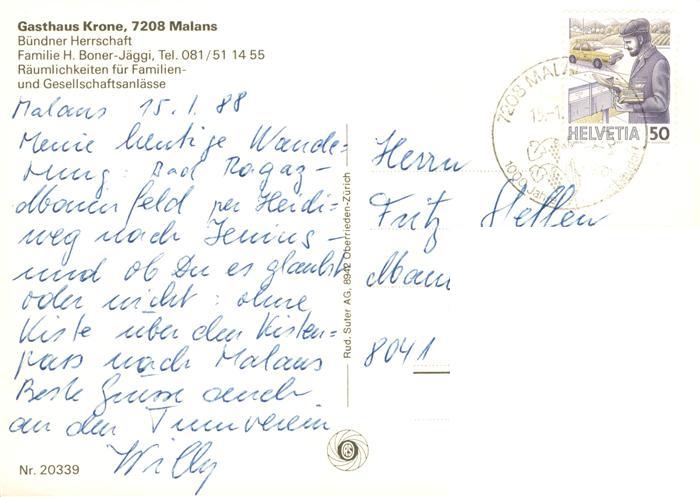 Gasthaus Krone, 7208 Malans
Bündner Herrschaft
Familie H. Boner-Jäggi, Tel. 081/51 14 55
Räumlichkeiten für Familien-
und Gesellschaftsanlässe
Malans 15.1.88
Meine heutige Wande=
rung: Bad Ragaz-
Maienfeld per Heidi=
weg nach Jenins -
und ob Du es glaubst
oder nicht: ohne
Kiste über den Kisten=
pass nach Malans
Beste Grüsse auch
an den Turnverein
Willy
Nr. 20339
Rud. Suter AG, 8942 Oberrieden-Zürich
HELVETIA 50
7208 MALA
15.-1.
1000 Jah
Herrn
Fritz
8041